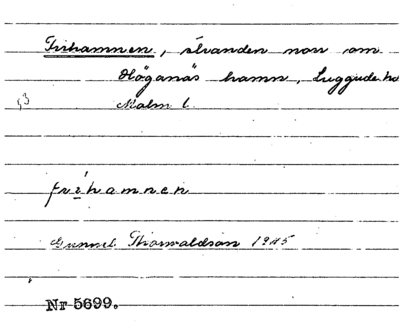 Frihamnen, stranden norr om
Höganäs hamn, Luggude hd
Malm l.
fri̱hamnen
Gunnel Thorwaldson 1945
Nr 5699.